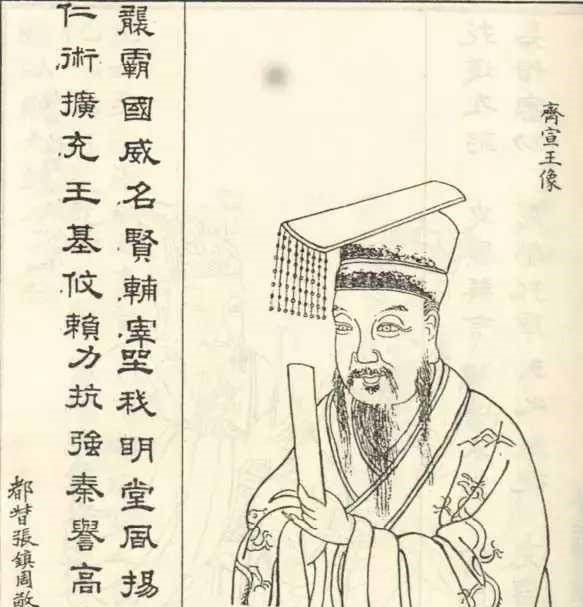 齊宣王像
襲霸國威名賢輔宰我明堂風揚
仁術擴充王基攸賴力抗強秦譽高
都督張鎮周敬